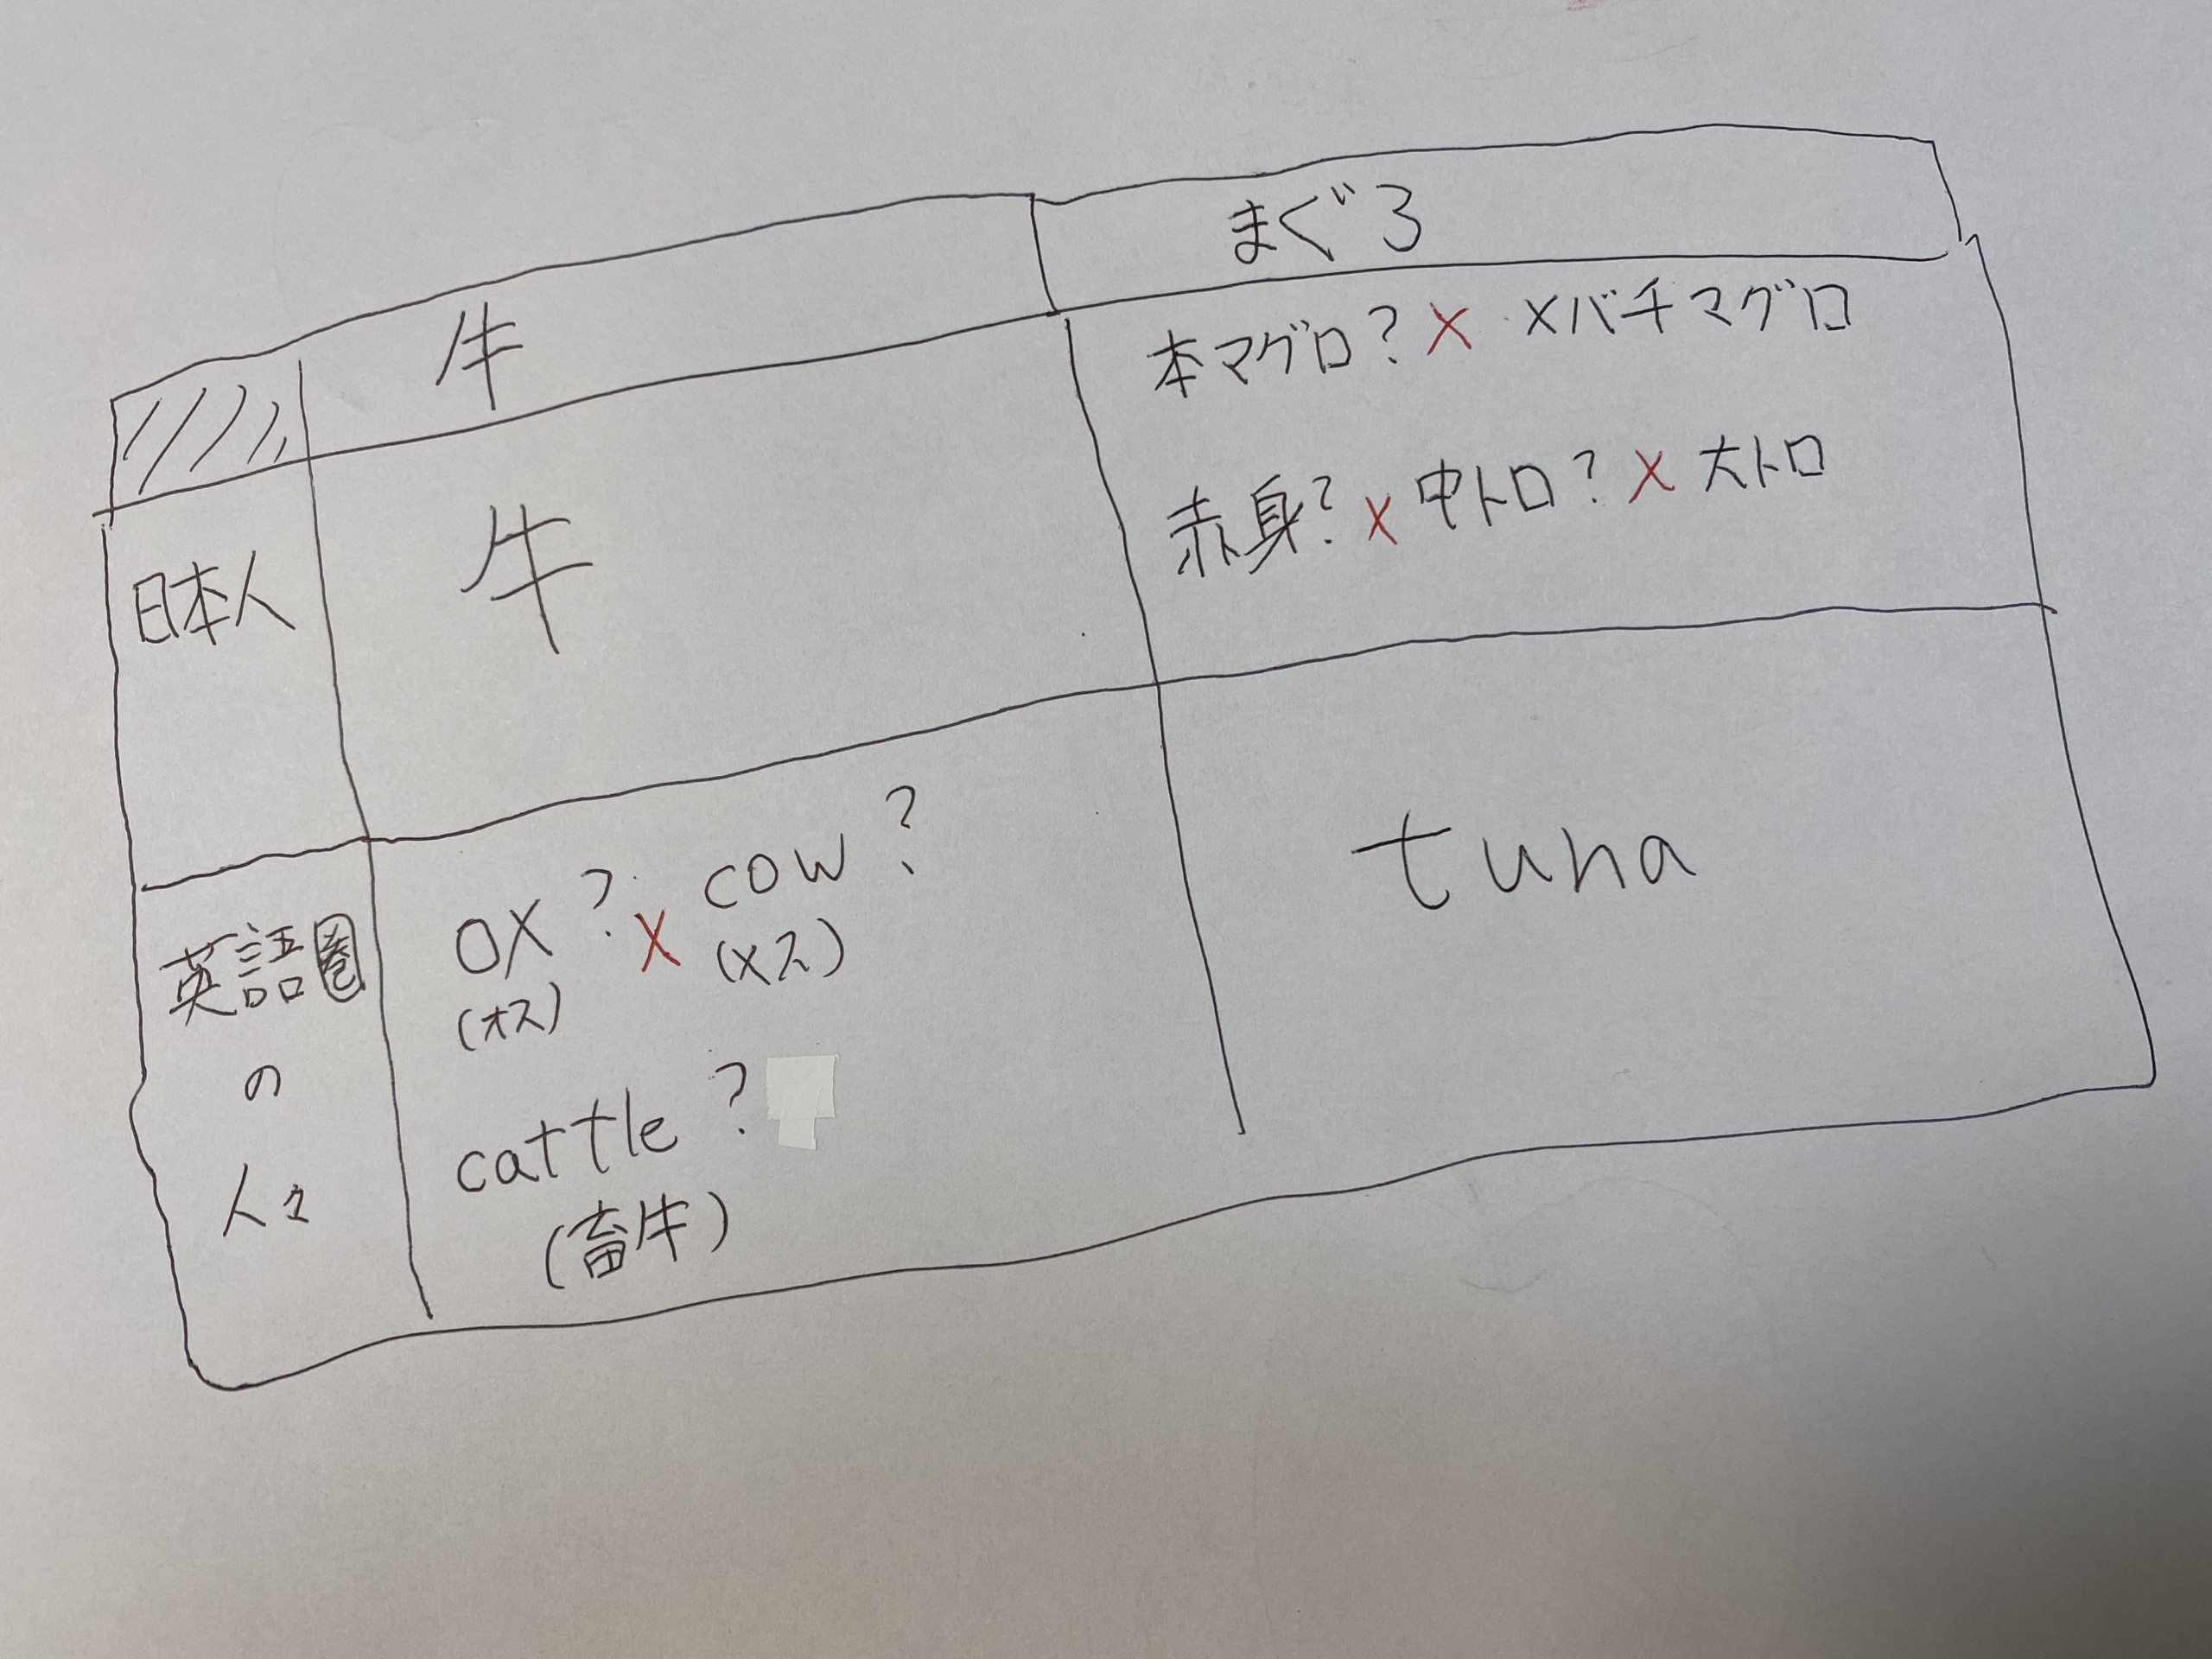 牛
まぐろ
日本人
牛
本マグロ? × メバチマグロ
赤身? × 中トロ? × 大トロ
英語圏
の
人々
ox? × cow?
(オス) (メス)
cattle?
(畜牛)
tuna